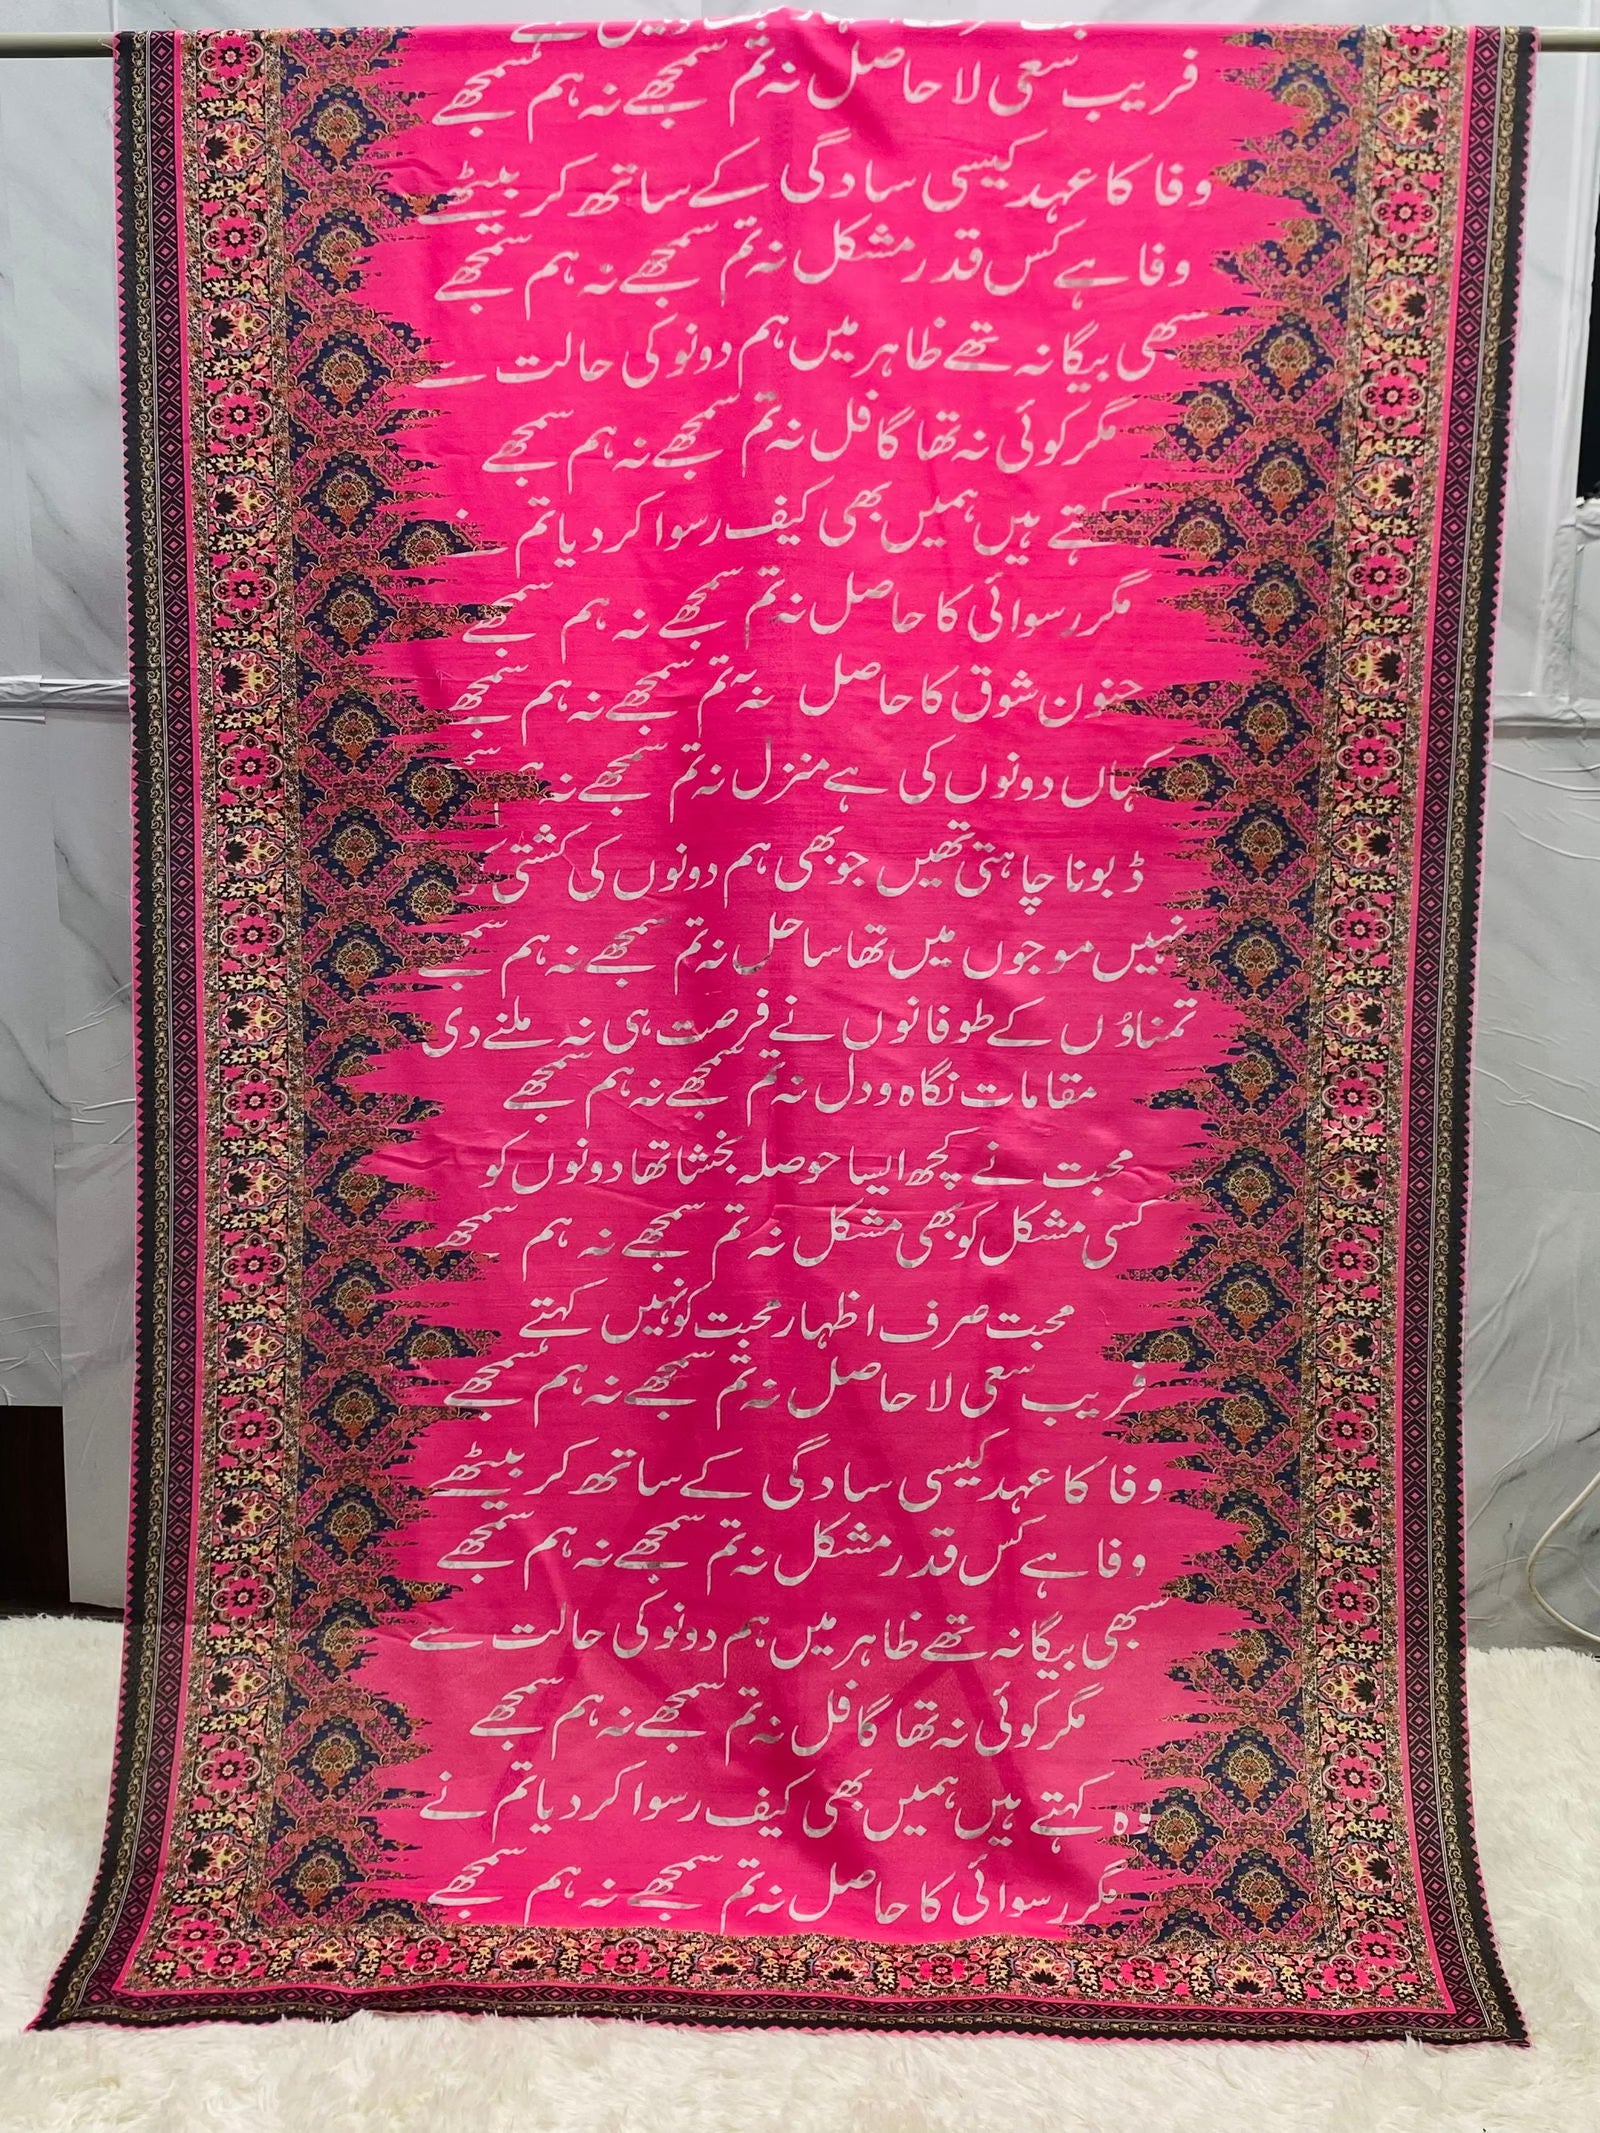 فریب سعی لا حاصل نہ تم سمجھے نہ ہم سمجھے
وفا کا عہد کیسی سادگی کے ساتھ کر بیٹھے
وفا ہے کس قدر مشکل نہ تم سمجھے نہ ہم سمجھے
سبھی بیگانہ تھے ظاہر میں ہم دونو کی حالت سے
مگر کوئی نہ تھا گافل نہ تم سمجھے نہ ہم سمجھے
کہتے ہیں ہمیں بھی کیف رسوا کر دیا تم نے
مگر رسوائی کا حاصل نہ تم سمجھے نہ ہم سمجھے
جنون شوق کا حاصل نہ تم سمجھے نہ ہم سمجھے
کہاں دونوں کی ہے منزل نہ تم سمجھے نہ
ڈبونا چاہتی تھیں جو بھی ہم دونوں کی کشتی کو
نہیں موجوں میں تھا ساحل نہ تم سمجھے نہ ہم سمجھے
تمناؤں کے طوفانوں نے فرصت ہی نہ ملنے دی
مقامات نگاہ و دل نہ تم سمجھے نہ ہم سمجھے
محبت نے کچھ ایسا حوصلہ بخشا تھا دونوں کو
کسی مشکل کو بھی مشکل نہ تم سمجھے نہ ہم سمجھے
محبت صرف اظہار محبت کو نہیں کہتے
فریب سعی لا حاصل نہ تم سمجھے نہ ہم سمجھے
وفا کا عہد کیسی سادگی کے ساتھ کر بیٹھے
وفا ہے کس قدر مشکل نہ تم سمجھے نہ ہم سمجھے
سبھی بیگانہ تھے ظاہر میں ہم دونو کی حالت سے
مگر کوئی نہ تھا گافل نہ تم سمجھے نہ ہم سمجھے
وہ کہتے ہیں ہمیں بھی کیف رسوا کر دیا تم نے
مگر رسوائی کا حاصل نہ تم سمجھے نہ ہم سمجھے